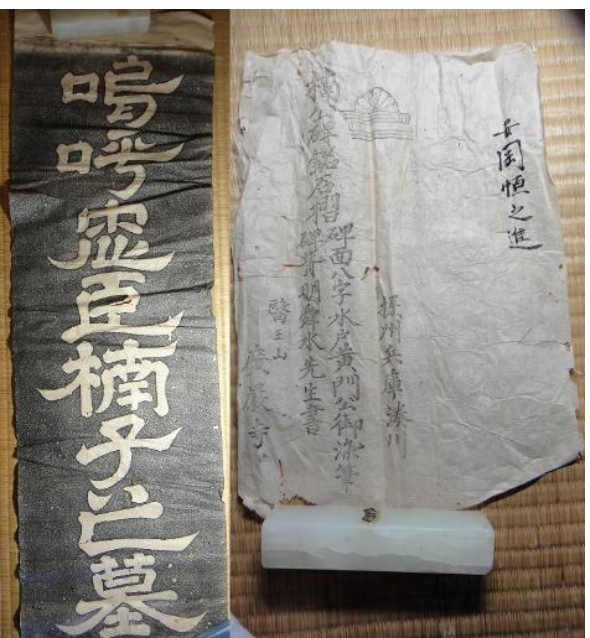 嗚呼忠臣楠子之墓
安岡恒之進
摂州兵庫湊川
楠 石摺
碑面八字水戸黄門公御染筆
碑背明舜水先生書
醫王山
廣厳寺